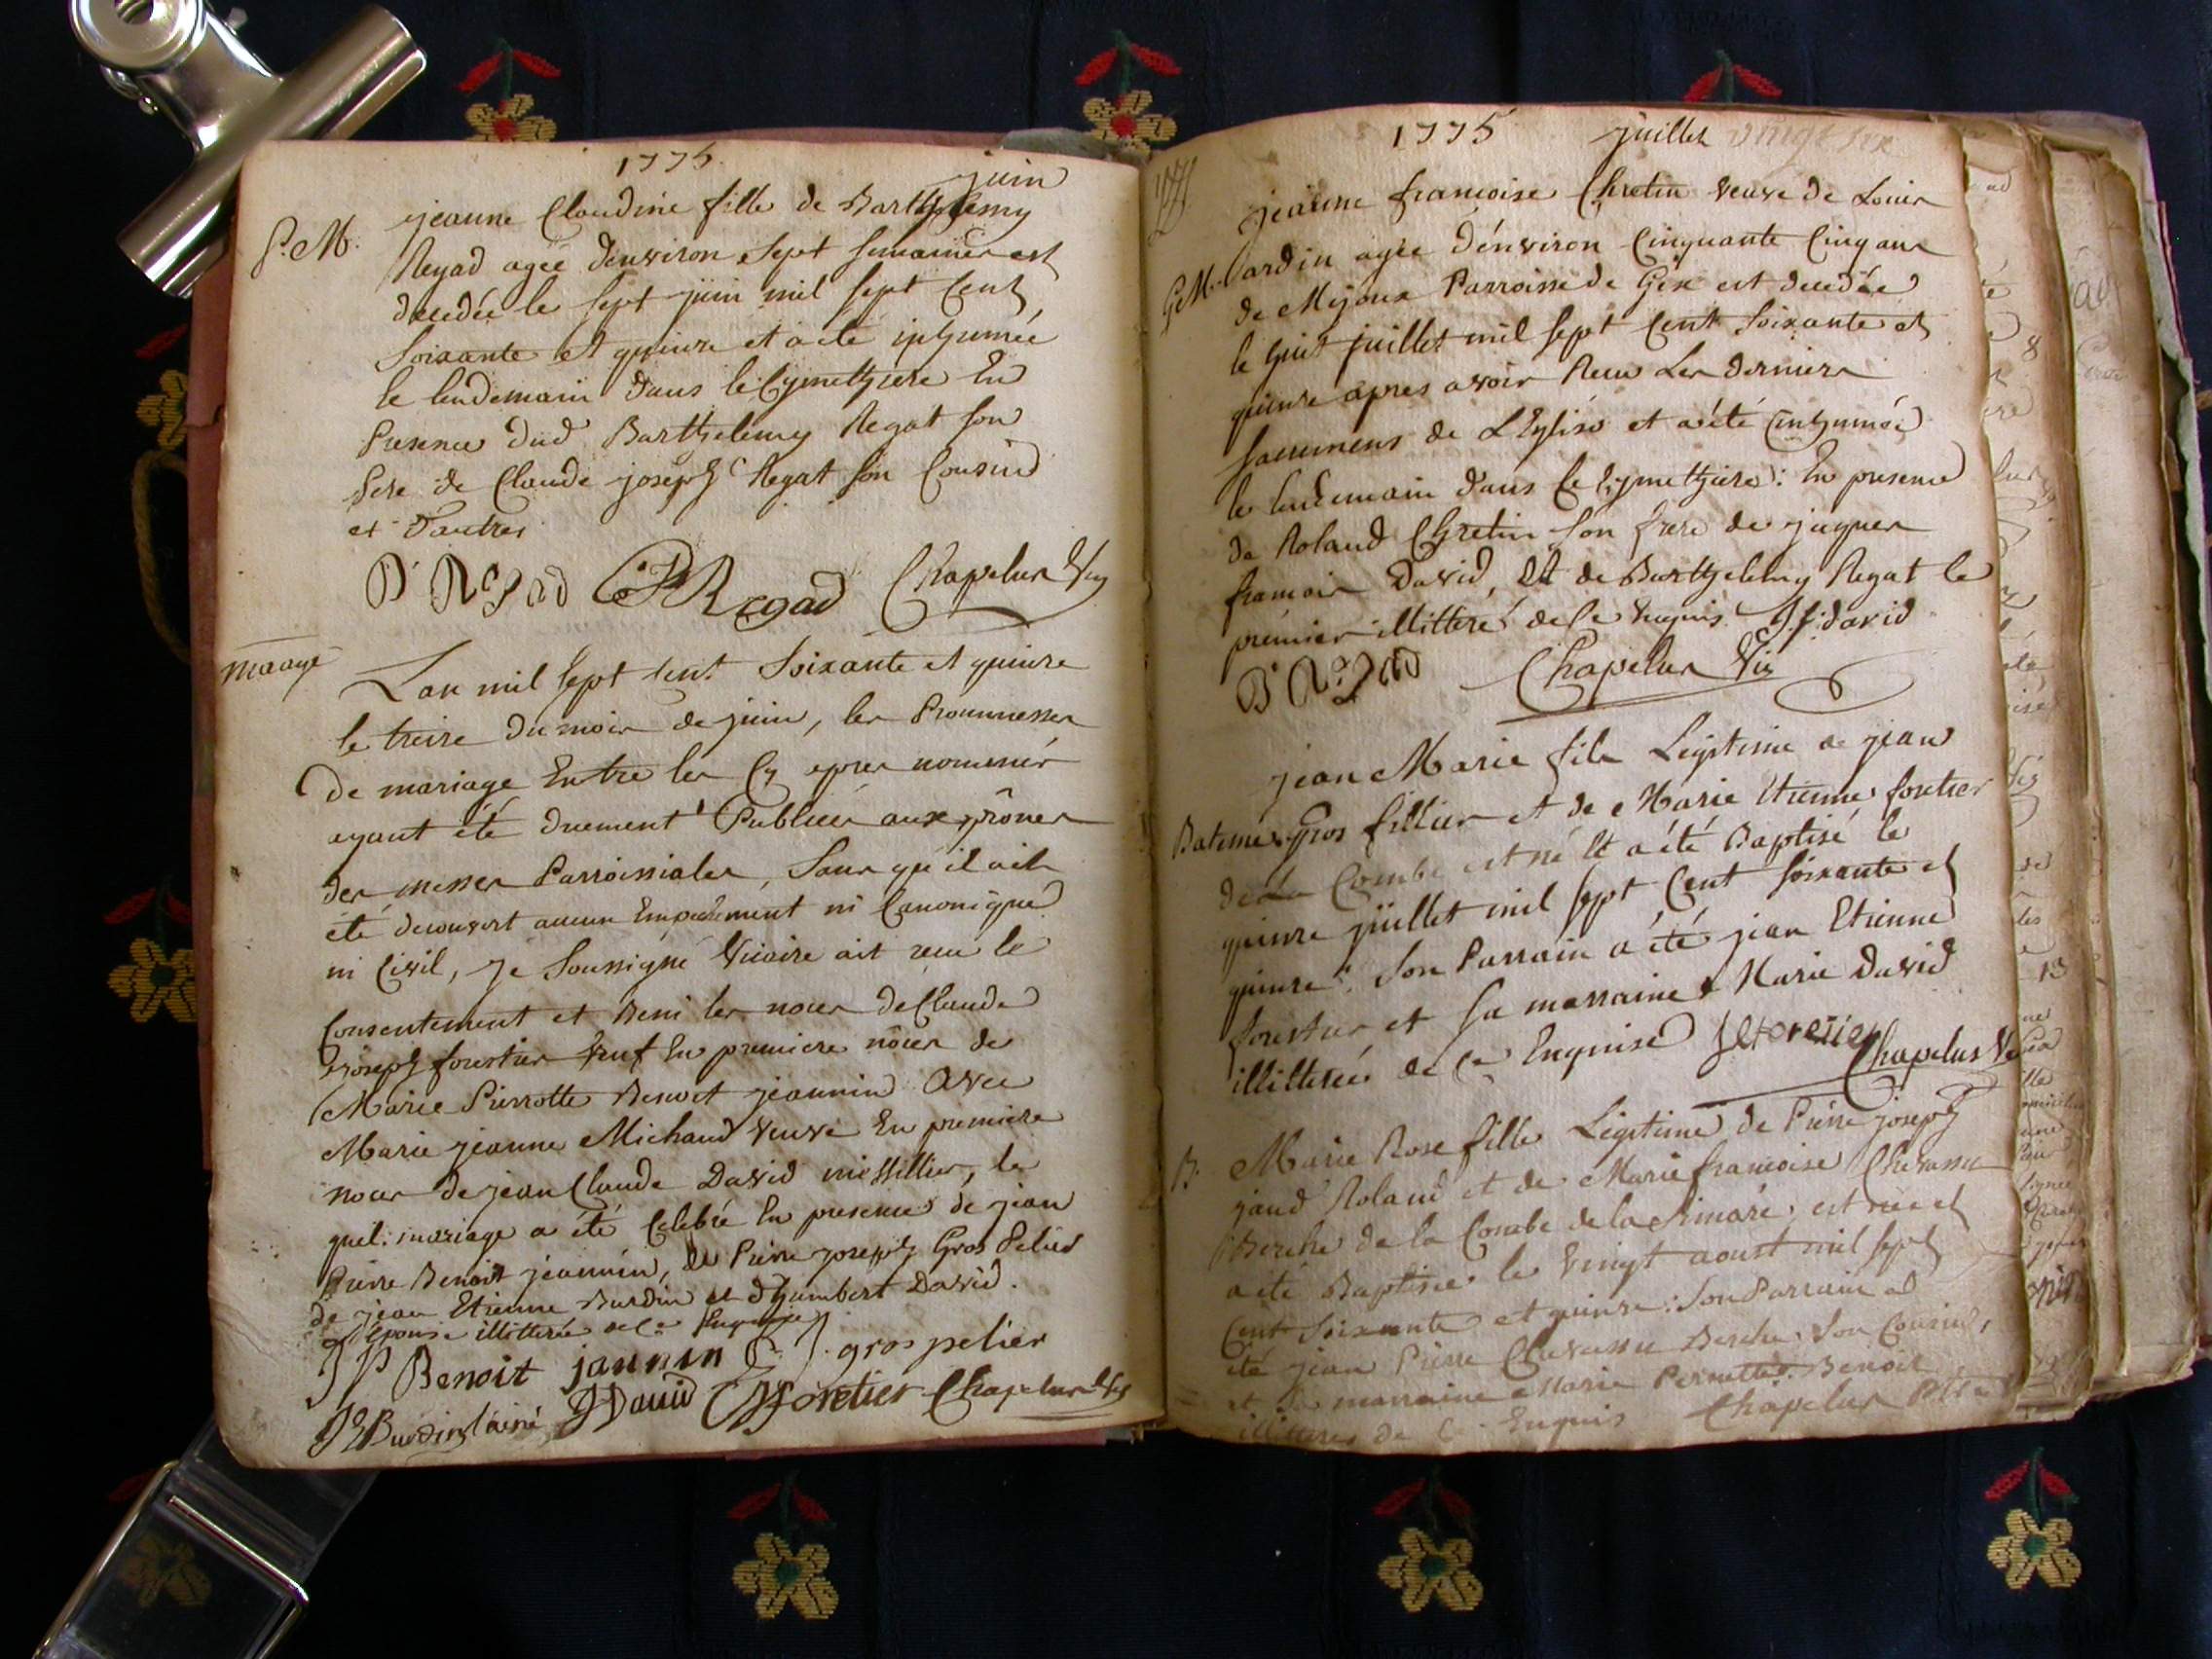 1775.
juin
P. M.
jeanne Claudine fille de Barthelemy
Regad agée d'environ sept semaines est
decedée le sept juin mil sept cent
soixante et quinze et a été inhumée
le lendemain dans le Cymethiere En
Presence dud Barthelemy Regat son
Pere de Claude joseph Regat son Cousin
et d'autres
B Regad CJ Regad Chapelus Vic
L'an mil sept cent soixante et quinze
le treize du mois de juin, les Prommesses
de mariage Entre les Cy apres nommés
ayant été duement Publiées aux prônes
des messes Parroissiales, sans qu'il ait
été decouvert aucun Empechement ni Canonique
ni Civil, je soussigné Vicaire ait reçu le
Consentement et Beni les noces de Claude
joseph forestier Veuf En premiere nôces de
Marie Pierrotte Benoit jeannin avec
Marie jeanne Michaud Veuve En premiere
noces de jean Claude David missillier, le
quel mariage a été Celebré En presence de jean
Pierre Benoit jeannin, de Pierre joseph Gros Pelier
de jean Etienne Burdin et d'humbert David.
L'Epouse illitterée de ce Enquise
J P Benoit jannin P J gros pelier
JE Burdin lainé H David CJ foretier Chapelus Vic
1775 juillet vingt six
jeanne francoise Chretin veuve de Louis
G.M. ardin agée d'environ Cinquante Cinq ans
de Mijoux Parroisse de Gex est decedée
le huit juillet mil sept cent soixante et
quinze apres avoir Receu Les derniers
sacremens de L'Eglise et a été inhumée
le lendemain dans le Cymethiere: En presence
de Roland Chretin son frere de jaques
francois David, et de Barthelemy Regat le
premier illitteré de ce Enquis. J. f. david
B Regad Chapelus Vic
jean Marie fils Legitime de jean
Bateme Gros fillier et de Marie Etienne foretier
de La Combe est né et a été Baptisé le
quinze juillet mil sept Cent soixante et
quinze: son Parrain a été jean Etienne
forestier et sa marraine Marie David
illitterée de ce Enquise JE foretier Chapelus Vic
B. Marie Rose fille Legitime de Pierre joseph
jand Roland et de Marie francoise Chevassu
Berche de la Combe de la Simare, est née et
a été Baptisée le Vingt aoust mil sept
Cent soixante et quinze: Son Parrain a
été jean Pierre Chevassu Berche son Cousin,
et sa marraine Marie Pernette Benoit
illitteres de ce Enquis Chapelus